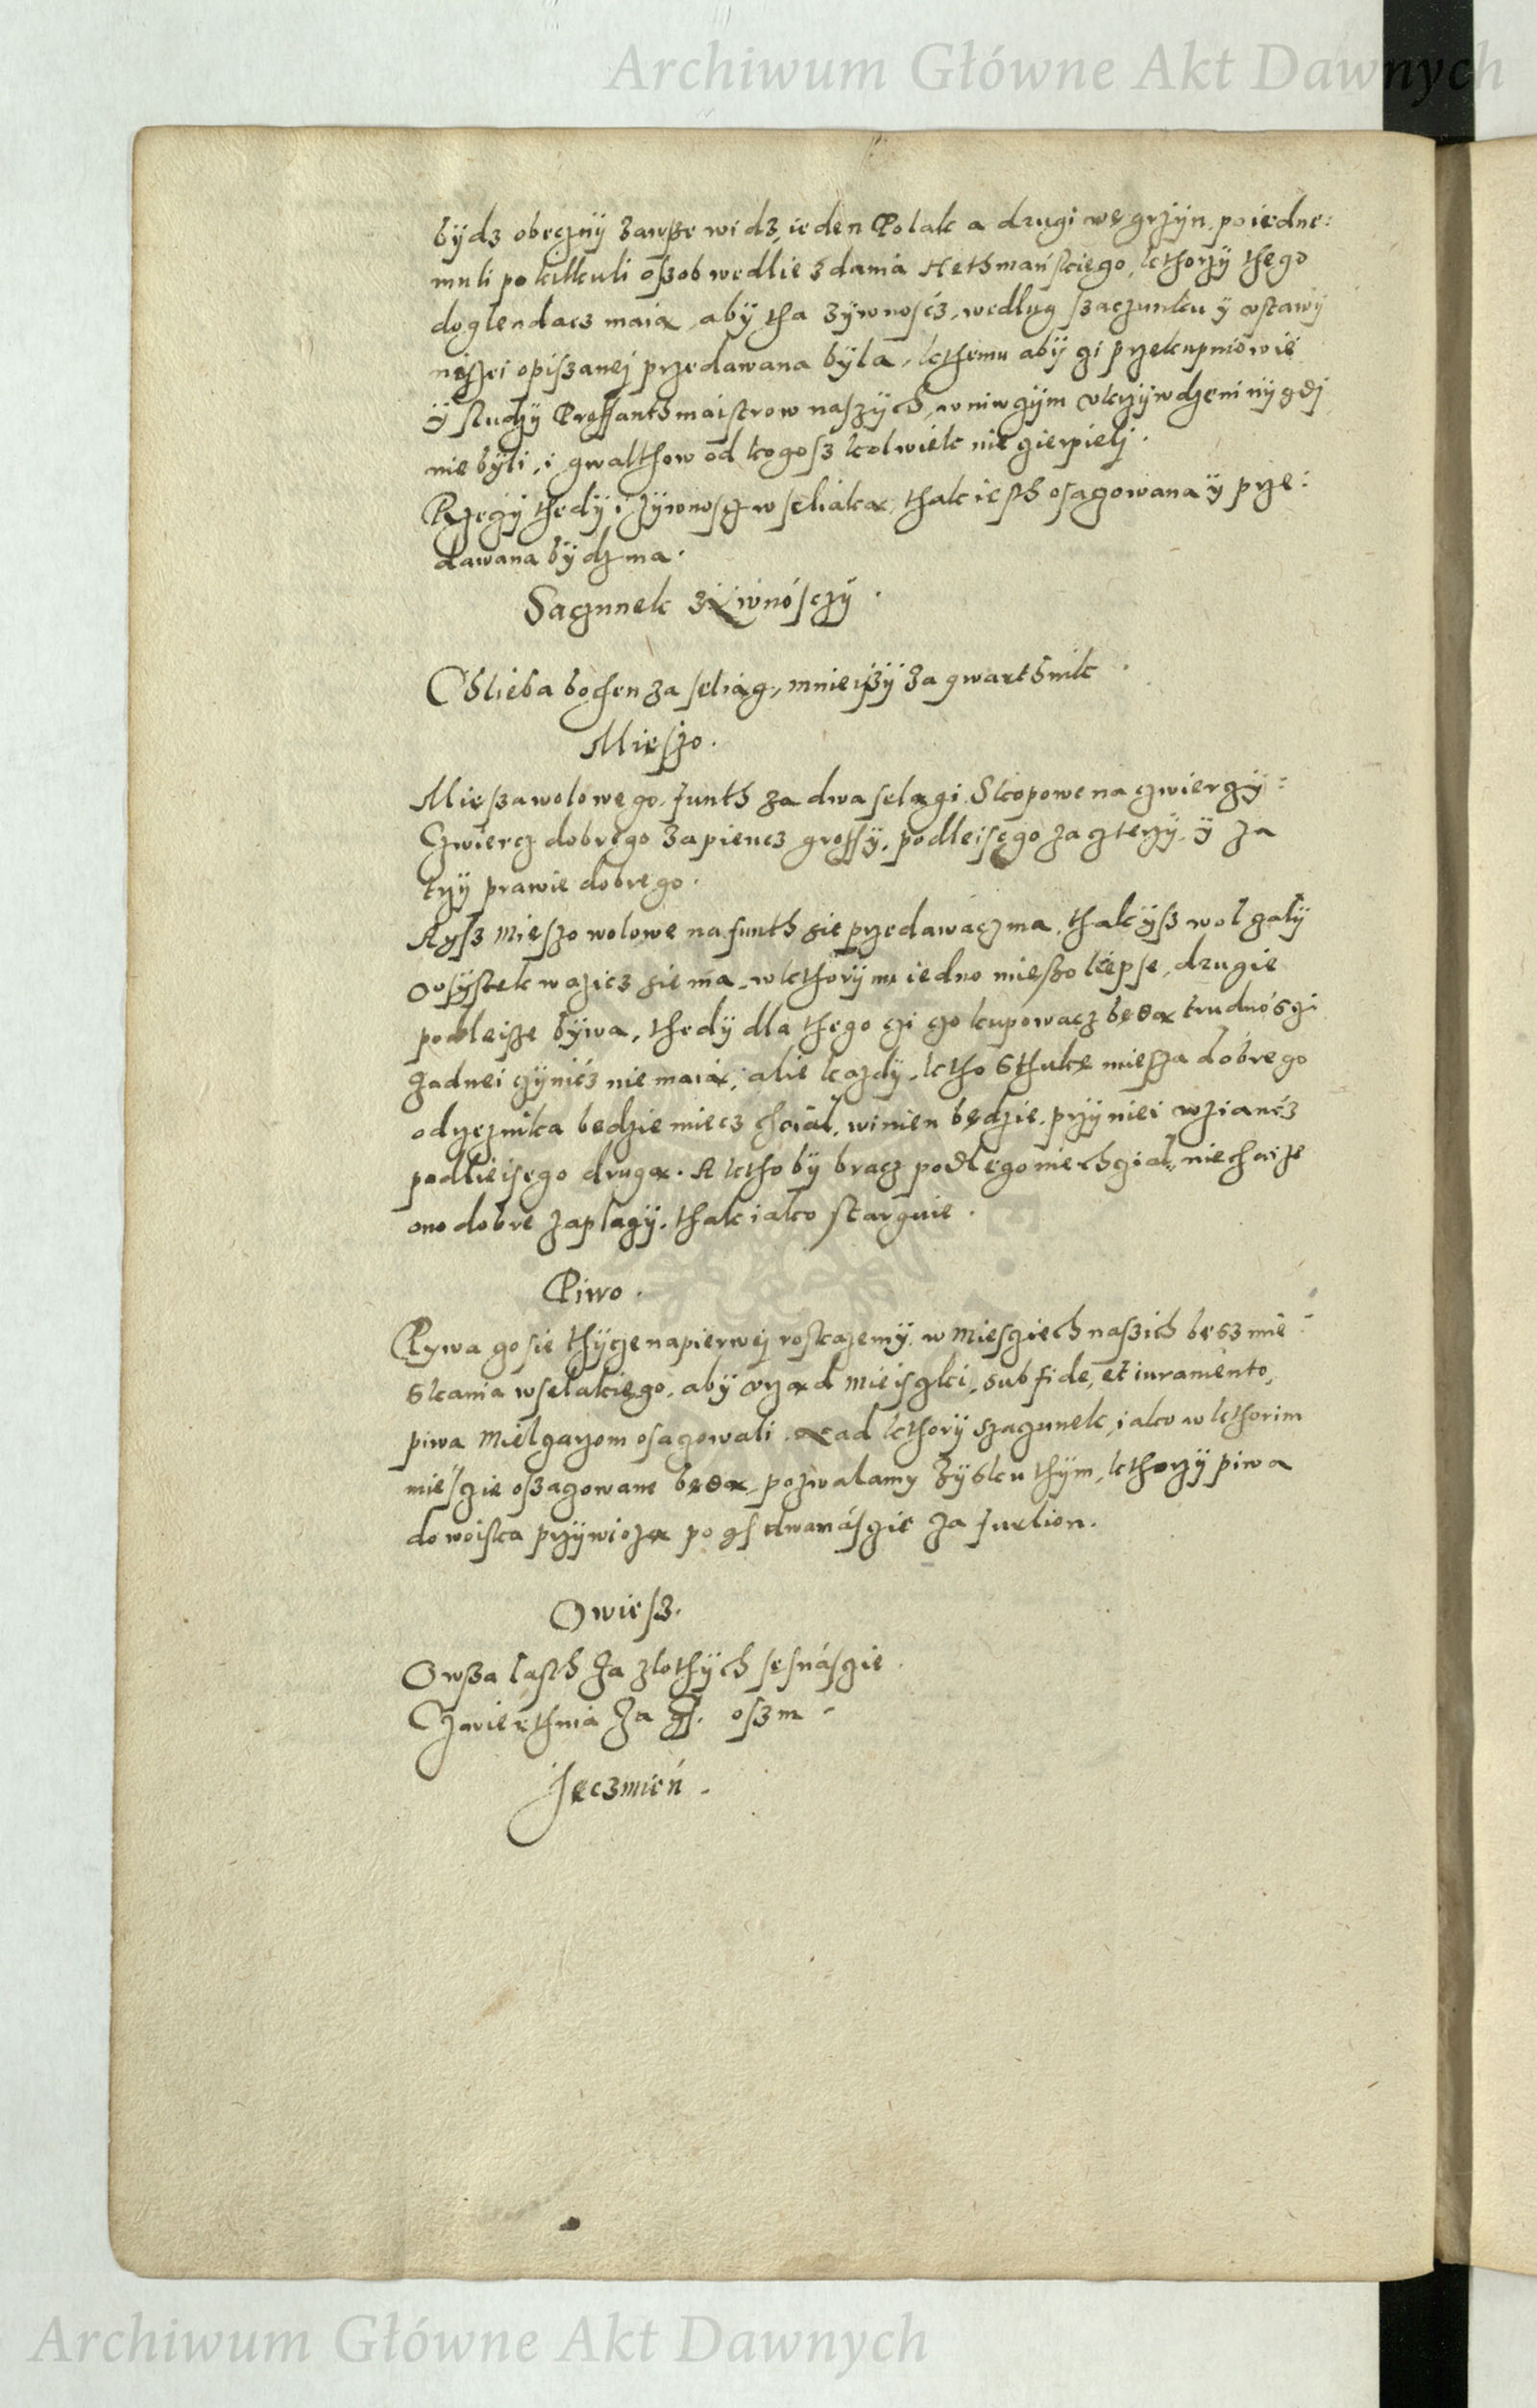 Archiwum Główne Akt Dawnych
bÿdz obecznÿ zawsze widz, ieden Polak a drugi węgrzÿn, poiedne:
muli po kilkuli oszob wedlie zdania Hethmańskiego, kthorzÿ thego
doglendacz maią, abÿ tha zÿwnoscz, według szaczunku ÿ vstawÿ
niszei opiszanej przedawana bÿla, kthemu abÿ ci przekupniowie
ÿ sludzÿ Proffanthmaistrow naszÿch, w niwczÿm vkrzÿwdzeni nÿgdj
nie bÿli, i gwalthow od kogosz kolwiek nie cierpielj.
Rzeczÿ thedÿ i zÿwnoscz wseliaka, thak iesth osacowana ÿ prze:
dawana bÿdz ma.
Sacunek zÿwnosczÿ.
Chlieba bochen za seliąg, mnieiszÿ za qwarthnik.
Mieszo.
Miesza wolowego funth za dwa selągi. Skopowe na czwierczÿ:
Czwiercz dobrego za piencz grossÿ, podleisego za czterzÿ, ÿ za
trzÿ prawie dobrego.
A ÿsz mieszo wolowe na funth sie przedawacz ma, thak ÿsz wol czalÿ
wsÿstek wazicz sie ma, w kthorÿm iedno mieszo liepse, drugie
podleisze bÿwa, thedÿ dla thego czi co kupowacz będą trudnosczi
zadnei czÿnicz nie maią, alie kazdÿ, ktho sthukę miesza dobrego
od rzeznika bedzie miecz chcial, winien będzie, przÿ niei wziancz
podlieisego drugą. A ktho bÿ bracz podlego nie chczial, niechaisze
ono dobre zaplaczÿ, thak iako starguie.
Piwo.
Pywa co sie thÿcze napierwej roskazemÿ, w miesciech naszich besz mie:
skania wselakiego, abÿ vrząd mieisczki, sub fide, et iuramento,
piwa mielczarzom osacowali. Nad kthorÿ szacunek, iako w kthorim
miesczie oszacowane będą, pozwalamy zÿsku thÿm, kthorzÿ piwa
do woiska przÿwiozą po gs dwanasczie za furlion.
Owiesz.
Owsza lasth za zlothÿch sesnasczie.
Czwierthnia za gs. oszm
Jęczmień.
Archiwum Główne Akt Dawnych